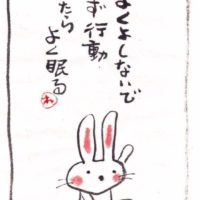 よくよしないで
ず行動
たら
よく眠る